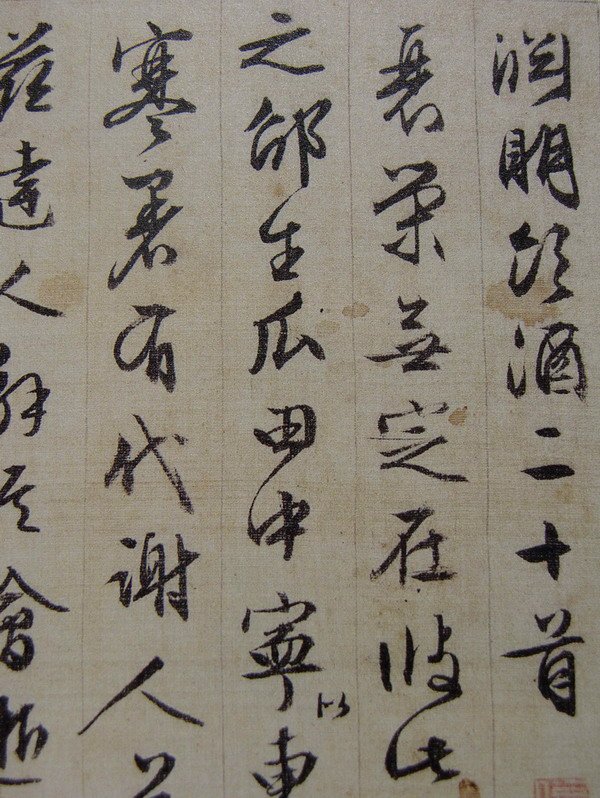 淵明飲酒二十首
衰榮無定在彼此
之邵生瓜田中寧似東
寒暑有代謝人
茲達人解其會逝